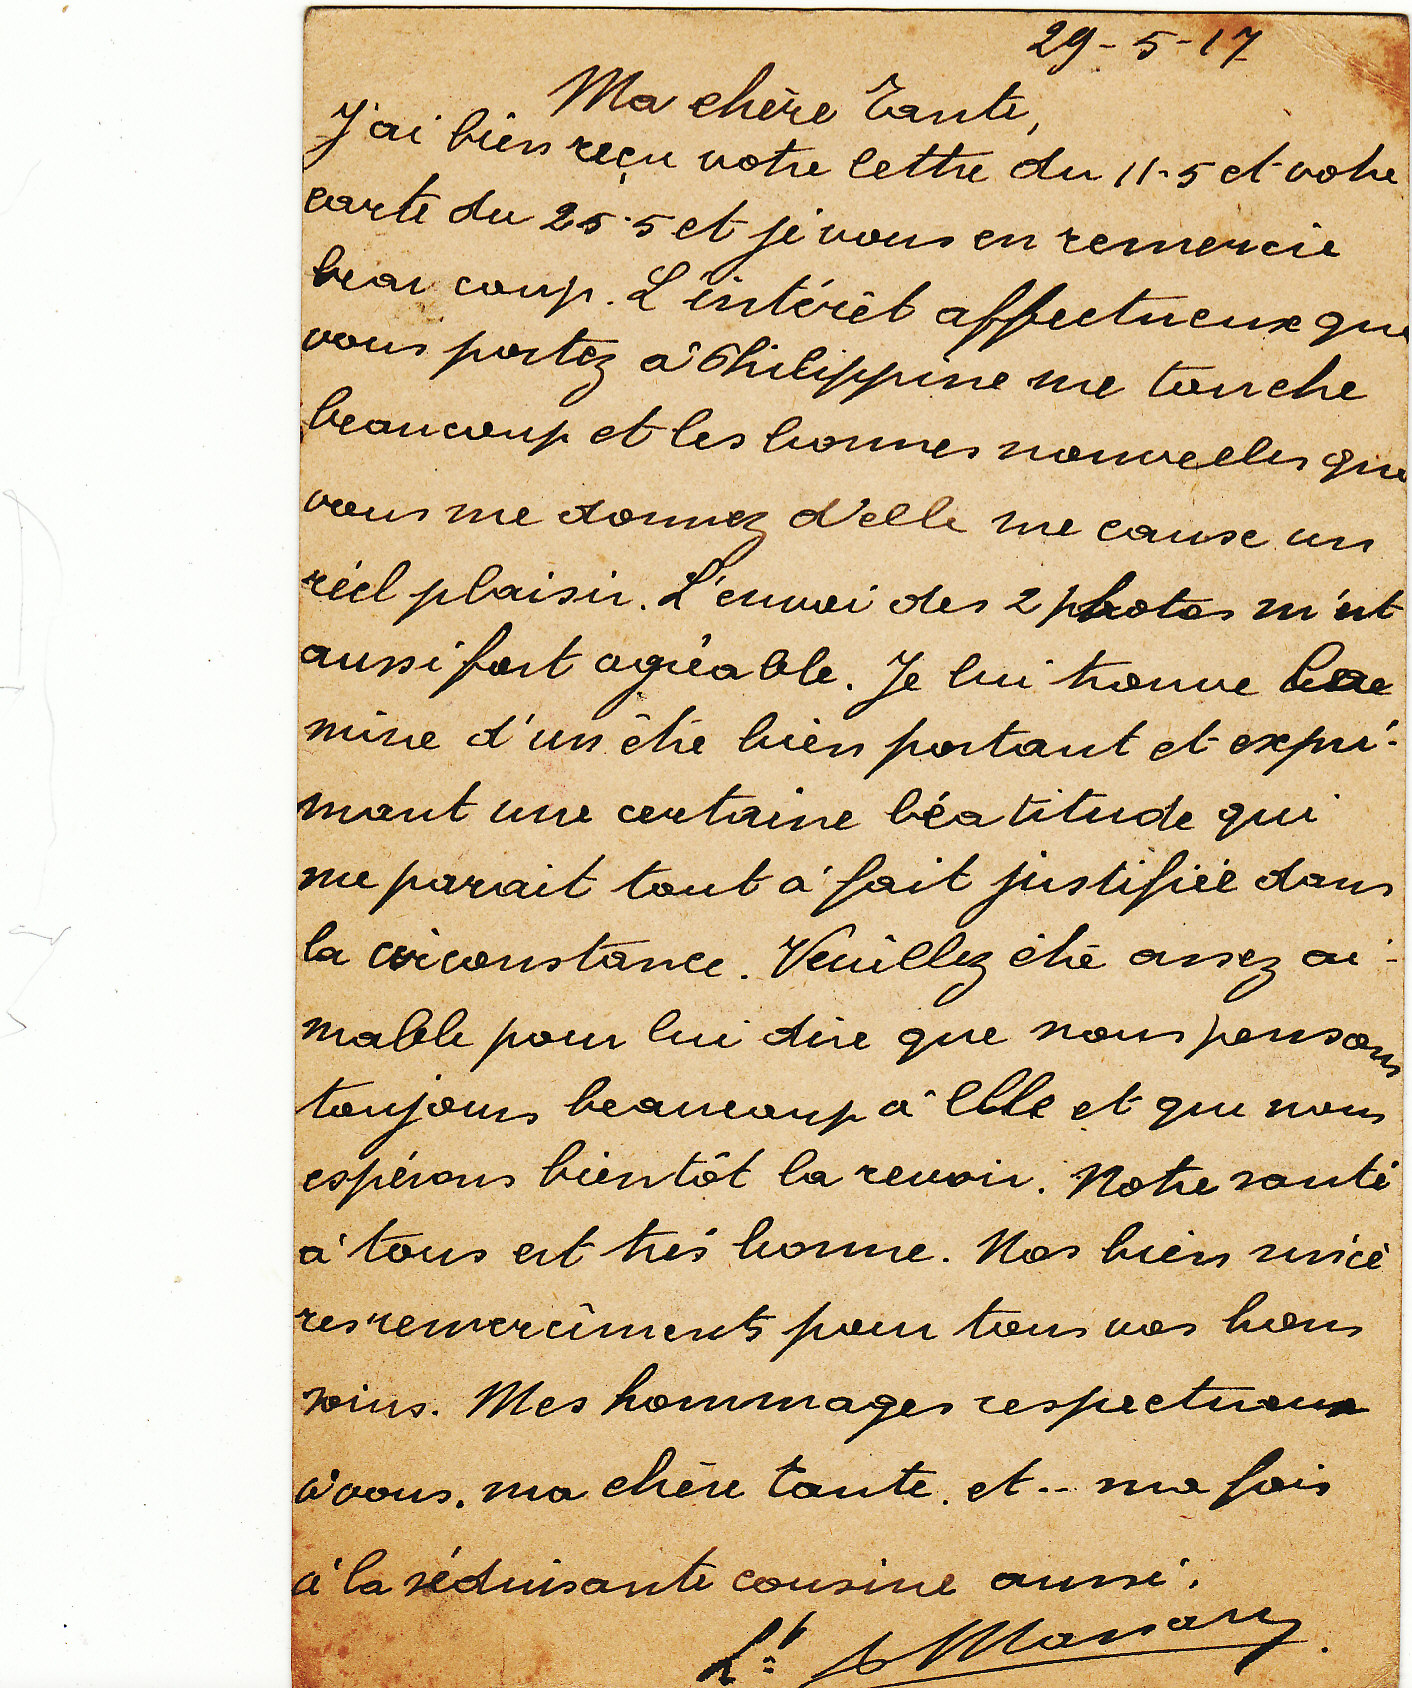 29-5-17
Ma chère Tante,
J'ai bien reçu votre lettre du 11-5 et votre
carte du 25-5 et je vous en remercie
beaucoup. L'intérêt affectueux que
vous portez à Philippine me touche
beaucoup et les bonnes nouvelles que
vous me donnez d'elle me cause un
réel plaisir. L'envoi des 2 photos m'est
aussi fort agréable. Je lui trouve la
mine d'un être bien portant et expri-
mant une certaine béatitude qui
me parait tout à fait justifiée dans
la circonstance. Veuillez être assez ai-
mable pour lui dire que nous pensons
toujours beaucoup à Elle et que nous
espérons bientôt la revoir. Notre santé
à tous est très bonne. Nos bien sincè
res remerciments pour tous vos bons
soins. Mes hommages respectueux
à vous, ma chère tante, et .. ma fois
à la séduisante cousine aussi.
Lt